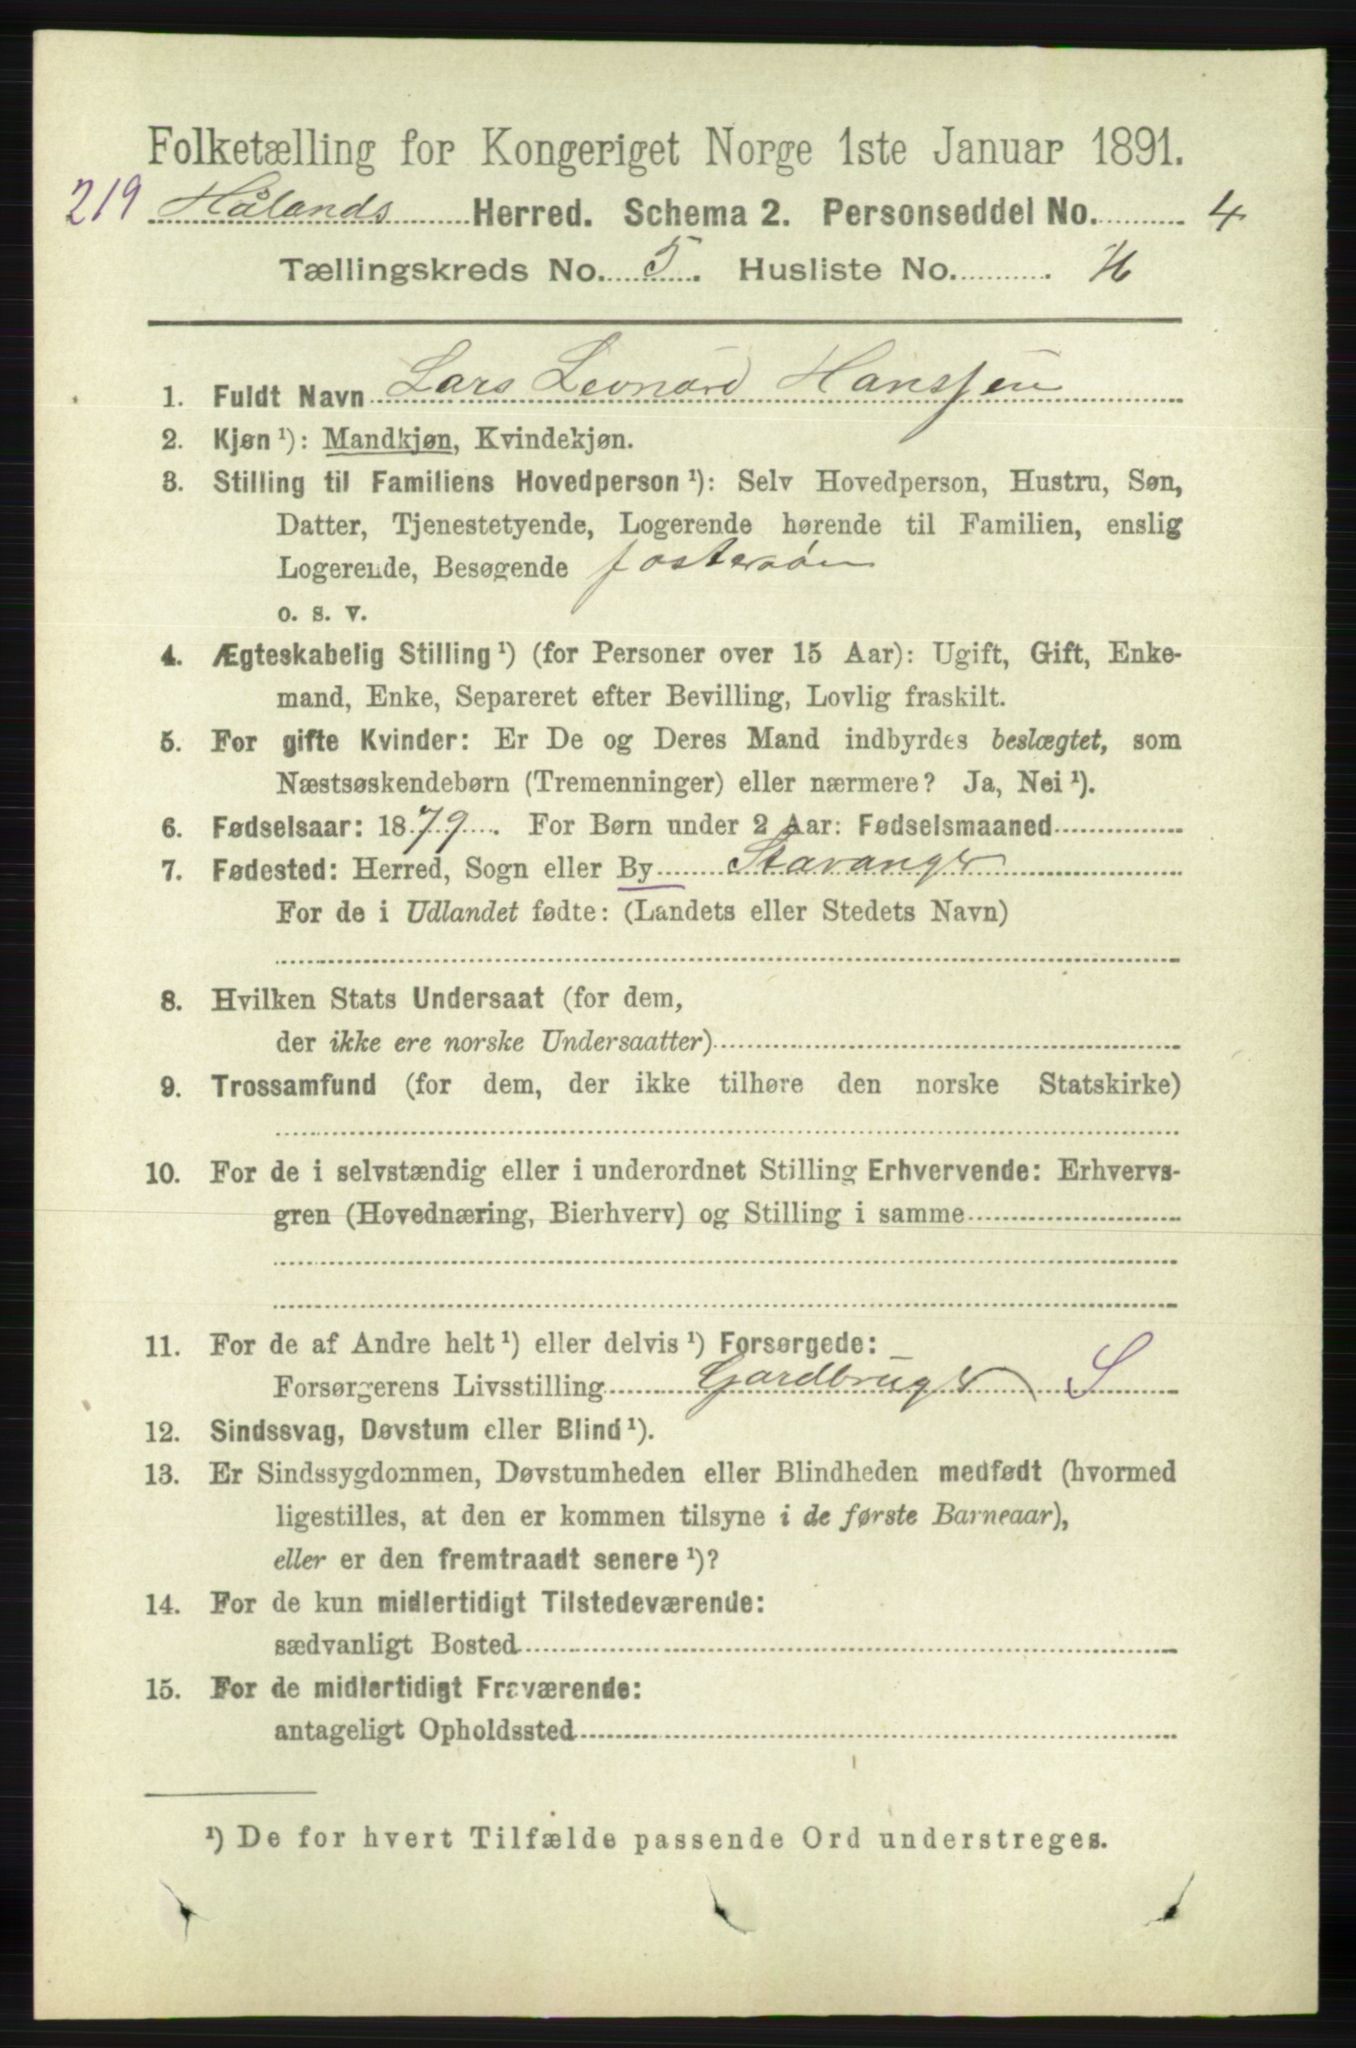 Folketælling for Kongeriget Norge 1ste Januar 1891.
219 Hålands Herred. Schema 2. Personseddel No. 4
Tællingskreds No. 5. Husliste No.
1. Fuldt Navn Lars Leonard Hanssen
2. Kjøn ¹): Mandkjøn, Kvindekjøn.
3. Stilling til Familiens Hovedperson ¹): Selv Hovedperson, Hustru, Søn,
Datter, Tjenestetyende, Logerende hørende til Familien, enslig
Logerende, Besøgende fostersøn
o. s. v.
4. Ægteskabelig Stilling ¹) (for Personer over 15 Aar): Ugift, Gift, Enke-
mand, Enke, Separeret efter Bevilling, Lovlig fraskilt.
5. For gifte Kvinder: Er De og Deres Mand indbyrdes beslægtet, som
Næstsøskendebørn (Tremenninger) eller nærmere? Ja, Nei ¹).
6. Fødselsaar: 1879. For Børn under 2 Aar: Fødselsmaaned
7. Fødested: Herred, Sogn eller By Stavanger
For de i Udlandet fødte: (Landets eller Stedets Navn)
8. Hvilken Stats Undersaat (for dem,
der ikke ere norske Undersaatter)
9. Trossamfund (for dem, der ikke tilhøre den norske Statskirke)
10. For de i selvstændig eller i underordnet Stilling Erhvervende: Erhvervs-
gren (Hovednæring, Bierhverv) og Stilling i samme
11. For de af Andre helt ¹) eller delvis ¹) Forsørgede:
Forsørgerens Livsstilling Gardbruger S
12. Sindssvag, Døvstum eller Blind ¹).
13. Er Sindssygdommen, Døvstumheden eller Blindheden medfødt (hvormed
ligestilles, at den er kommen tilsyne i de første Barneaar),
eller er den fremtraadt senere ¹)?
14. For de kun midlertidigt Tilstedeværende:
sædvanligt Bosted
15. For de midlertidigt Fraværende:
antageligt Opholdssted
¹) De for hvert Tilfælde passende Ord understreges.